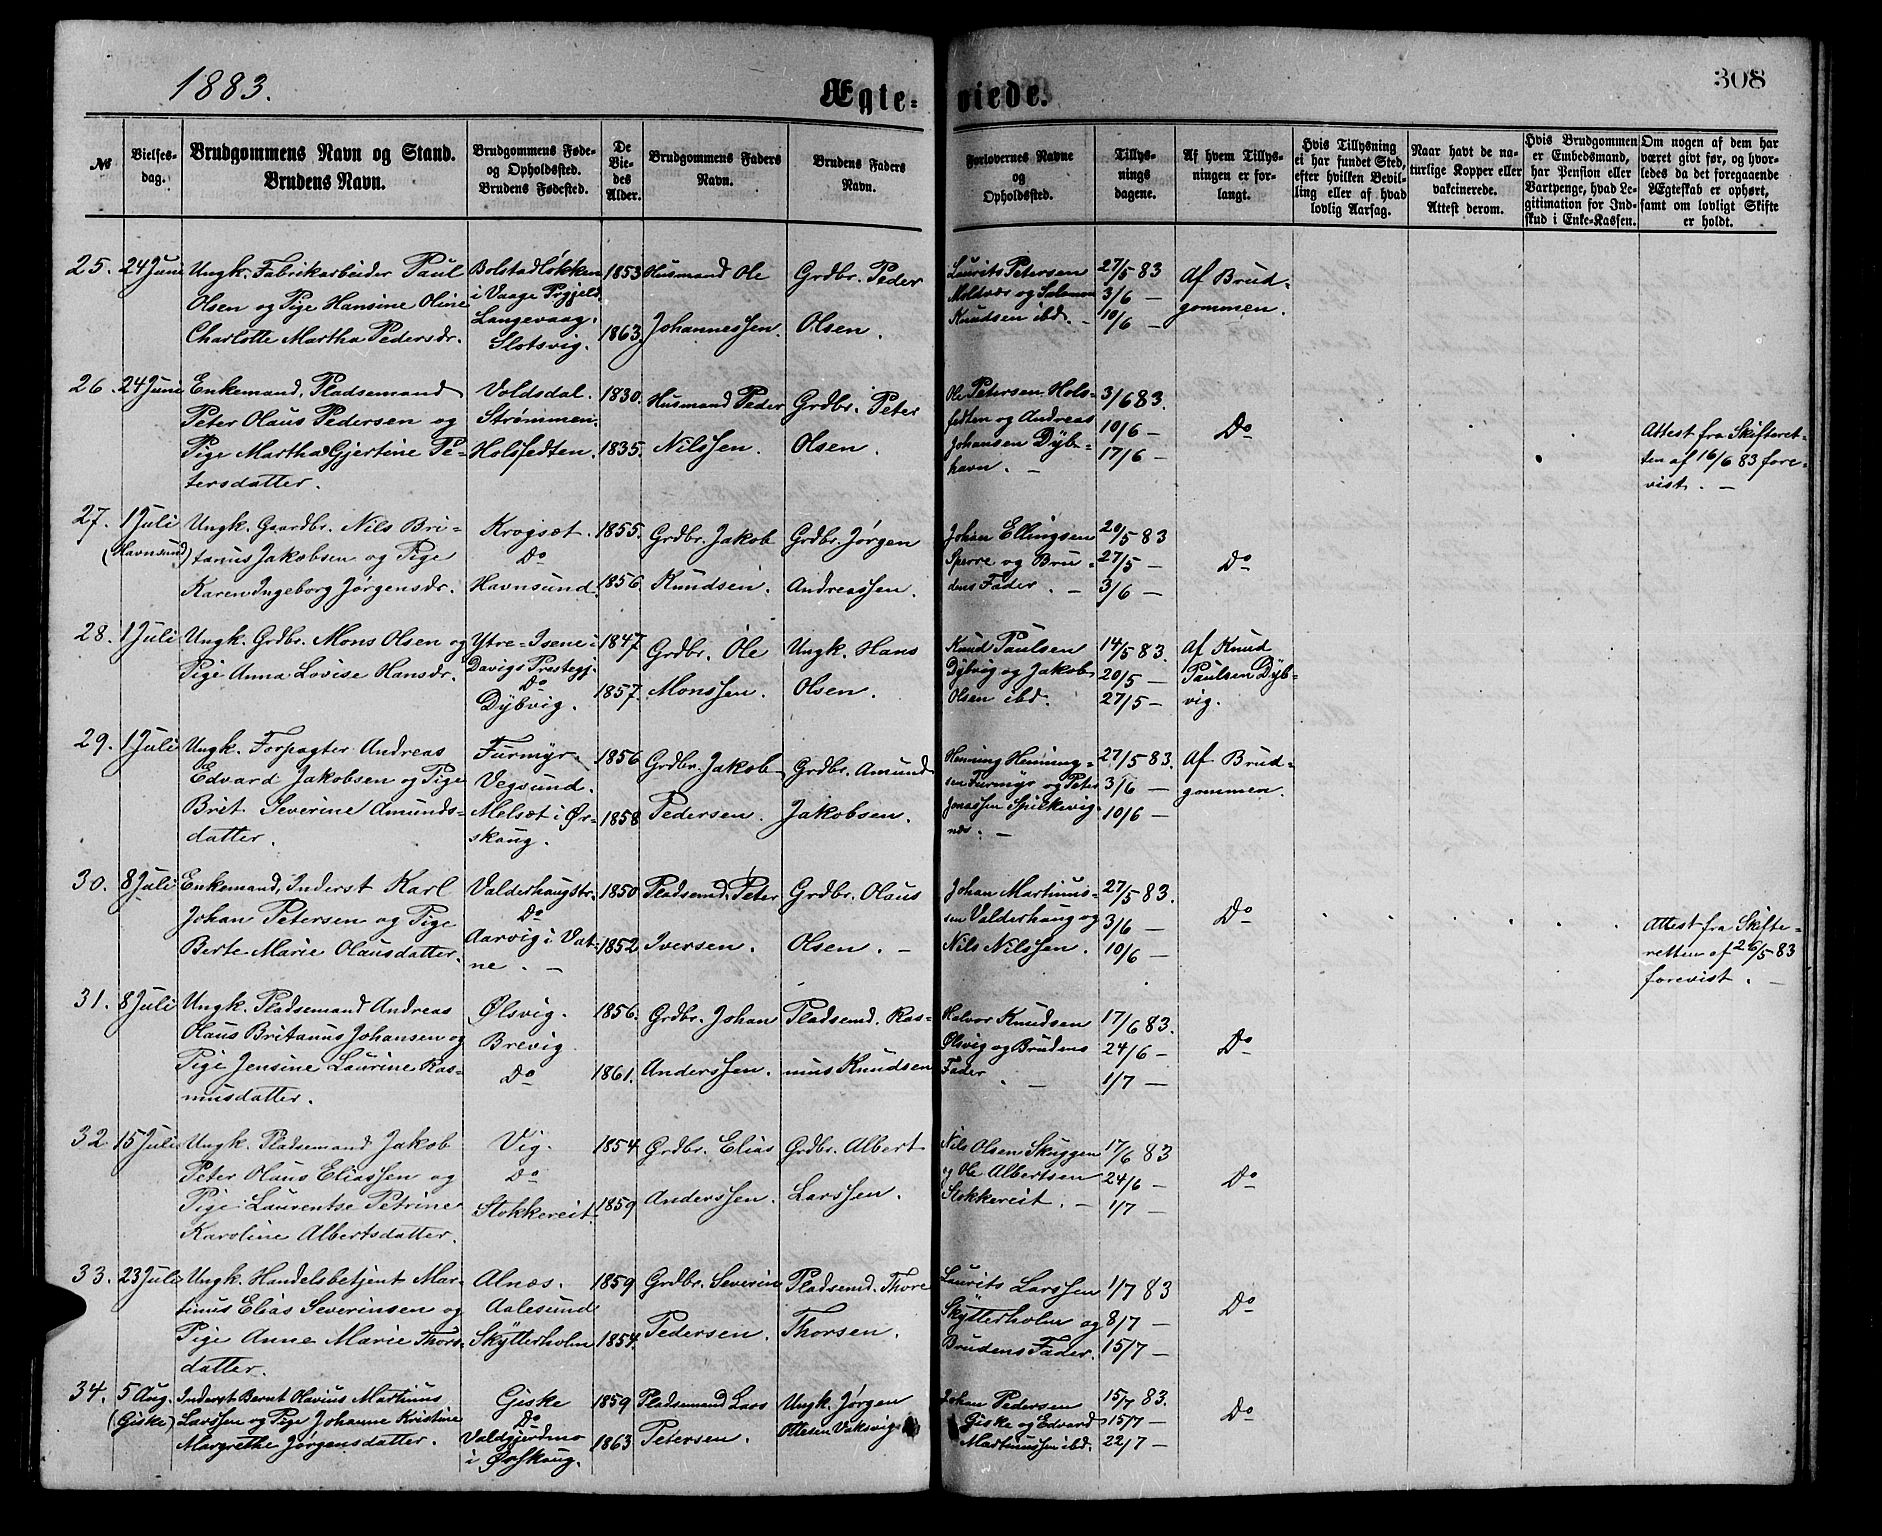 1883.
Ægte-
viede.
308
№
Vielses-
dag.
Brudgommens Navn og Stand.
Brudens Navn.
Brudgommens Føde-
og Opholdssted.
Brudens Fødested.
De
Vie-
des
Alder.
Brudgommens Faders
Navn.
Brudens Faders
Navn.
Forlovernes Navne
og
Opholdssted.
Tillys-
nings
dagene.
Af hvem Tillys-
ningen er for-
langt.
Hvis Tillysning
ei har fundet Sted,
efter hvilken Bevil-
ling eller af hvad
lovlig Aarsag.
Naar havt de na-
turlige Kopper eller
vakcinerede.
Attest derom.
Hvis Brudgommen
er Embedsmand,
har Pension eller
Vartpenge, hvad Le-
gitimation for Ind-
skud i Enke-Kassen.
Om nogen af dem har
været givt før, og hvor-
ledes da det foregaaende
Ægteskab er ophørt,
samt om lovligt Skifte
er holdt.
25.
24 Juni
Ungk. Fabrikarbeider Paul
Olsen og Pige Hansine Oline
Charlotte Martha Pedersdr.
Bolstadløkken
i Vaage Prgjeld
Langevaag.
Slotsvig.
1853
1863
Husmand Ole
Johannessen.
Grdbr. Peder
Olsen.
Laurits Petersen
Moldvær og Salomon
Knudsen ibd. –
27/5 83
3/6 –
10/6 –
Af Brud-
gommen.
26.
24 Juni
Enkemand, Pladsemand
Peter Olaus Pedersen og
Pige Martha Gjertine Pe-
tersdatter.
Voldsdal.
Strømmen.
Holsfedten.
1830.
1835.
Husmand Peder
Nilssen.
Grdbr. Peter
Olsen.
Ole Petersen Hols-
fedten og Andreas
Johansen Dyb-
havn. –
3/6 83.
10/6 –
17/6 –
Do
Attest fra Skifteret-
ten af 16/6 83 fore-
vist. –
27.
1 Juli
(Havnsund)
Ungk. Gaardbr. Nils Bri-
tanus Jakobsen og Pige
Karen Ingeborg Jørgensdr.
Krogsæt.
Do
Havnsund.
1855.
1856.
Grdbr. Jakob
Knudsen.
Grdbr. Jørgen
Andreassen.
Johan Ellingsen
Sperre og Bru-
dens Fader. –
20/5 83
27/5 –
3/6 –
Do
28.
1 Juli
Ungk. Grdbr. Mons Olsen og
Pige Anna Lovise Hansdr.
Ytre-Isene i
Davigs Prestegj.
Do
Dybvig.
1847.
1857.
Grdbr. Ole
Monssen.
Ungk. Hans
Olsen.
Knud Paulsen
Dybvig og Jakob
Olsen ibd.
14/5 83.
20/5 –
27/5 –
Af Knud
Paulsen Dyb-
vig.
29.
1 Juli
Ungk. Forpagter Andreas
Edvard Jakobsen og Pige
Brit Severine Amunds-
datter.
Furmyr.
Vegsund.
Melsæt i Ør-
skoug.
1856
1858
Grdbr. Jakob
Pedersen.
Grdbr. Amund
Jakobsen.
Henning Henning-
sen Furmyr og Peter
Jonassen Spilkevig-
næs. –
27/5 83.
3/6 –
10/6 –
Af Brud-
gommen.
30.
8 Juli
Enkemand, Inderst Karl
Johan Petersen og Pige
Berte Marie Olausdatter.
Valderhaugstr.
Do
Aarvig i Vat-
ne. –
1850
1852
Pladsemd. Peter
Iversen.
Grdbr. Olaus
Olsen. –
Johan Martinus-
sen Valderhaug og
Nils Nilssen.
27/5 83.
3/6 –
10/6 –
Do
Attest fra Skifte-
retten af 26/5 83
forevist. –
31.
8 Juli
Ungk. Pladsemand Andreas
Olaus Britanus Johansen og
Pige Jensine Laurine Ras-
musdatter.
Ølsvig.
Brevig
Do
1856.
1861.
Grdbr. Johan
Anderssen.
Pladsemd. Ras-
mus Knudsen
Halvor Knudsen
Ølsvig og Brudens
Fader. –
17/6 83.
24/6 –
1/7 –
Do
32
15 Juli
Ungk. Pladsemand Jakob
Peter Olaus Eliassen og
Pige Laurentse Petrine
Karoline Albertsdatter.
Vig.
Do
Stokkereit.
1854
1859
Grdbr. Elias
Anderssen.
Grdbr. Albert
Larssen.
Nils Olsen Skuggen
og Ole Albertsen
Stokkereit. –
17/6 83
24/6 –
1/7 –
Do
33.
23 Juli
Ungk. Handelsbetjent Mar-
tinus Elias Severinsen og
Pige Anne Marie Thors-
datter.
Alnæs.
Aalesund
Skytterholm
1859
1854.
Grdbr. Severin
Pedersen.
Pladsemd. Thore
Thorsen.
Laurits Larssen
Skytterholm og
Brudens Fader.
1/7 83
8/7 –
15/7 –
Do
34.
5 Aug.
(Giske)
Inderst Bernt Olavius Martinus
Larssen og Pige Johanne Kristine
Margrethe Jørgensdatter.
Giske
Do
Valdgjerdmo
i Ørskoug.
1859
1863
Pladsemand Lars
Petersen.
Ungk. Jørgen
Ottesen Vaksvig
Johan Pedersen
Giske og Edvard
Martinussen ibd.
15/7 83.
15/7 –
22/7 –
Do